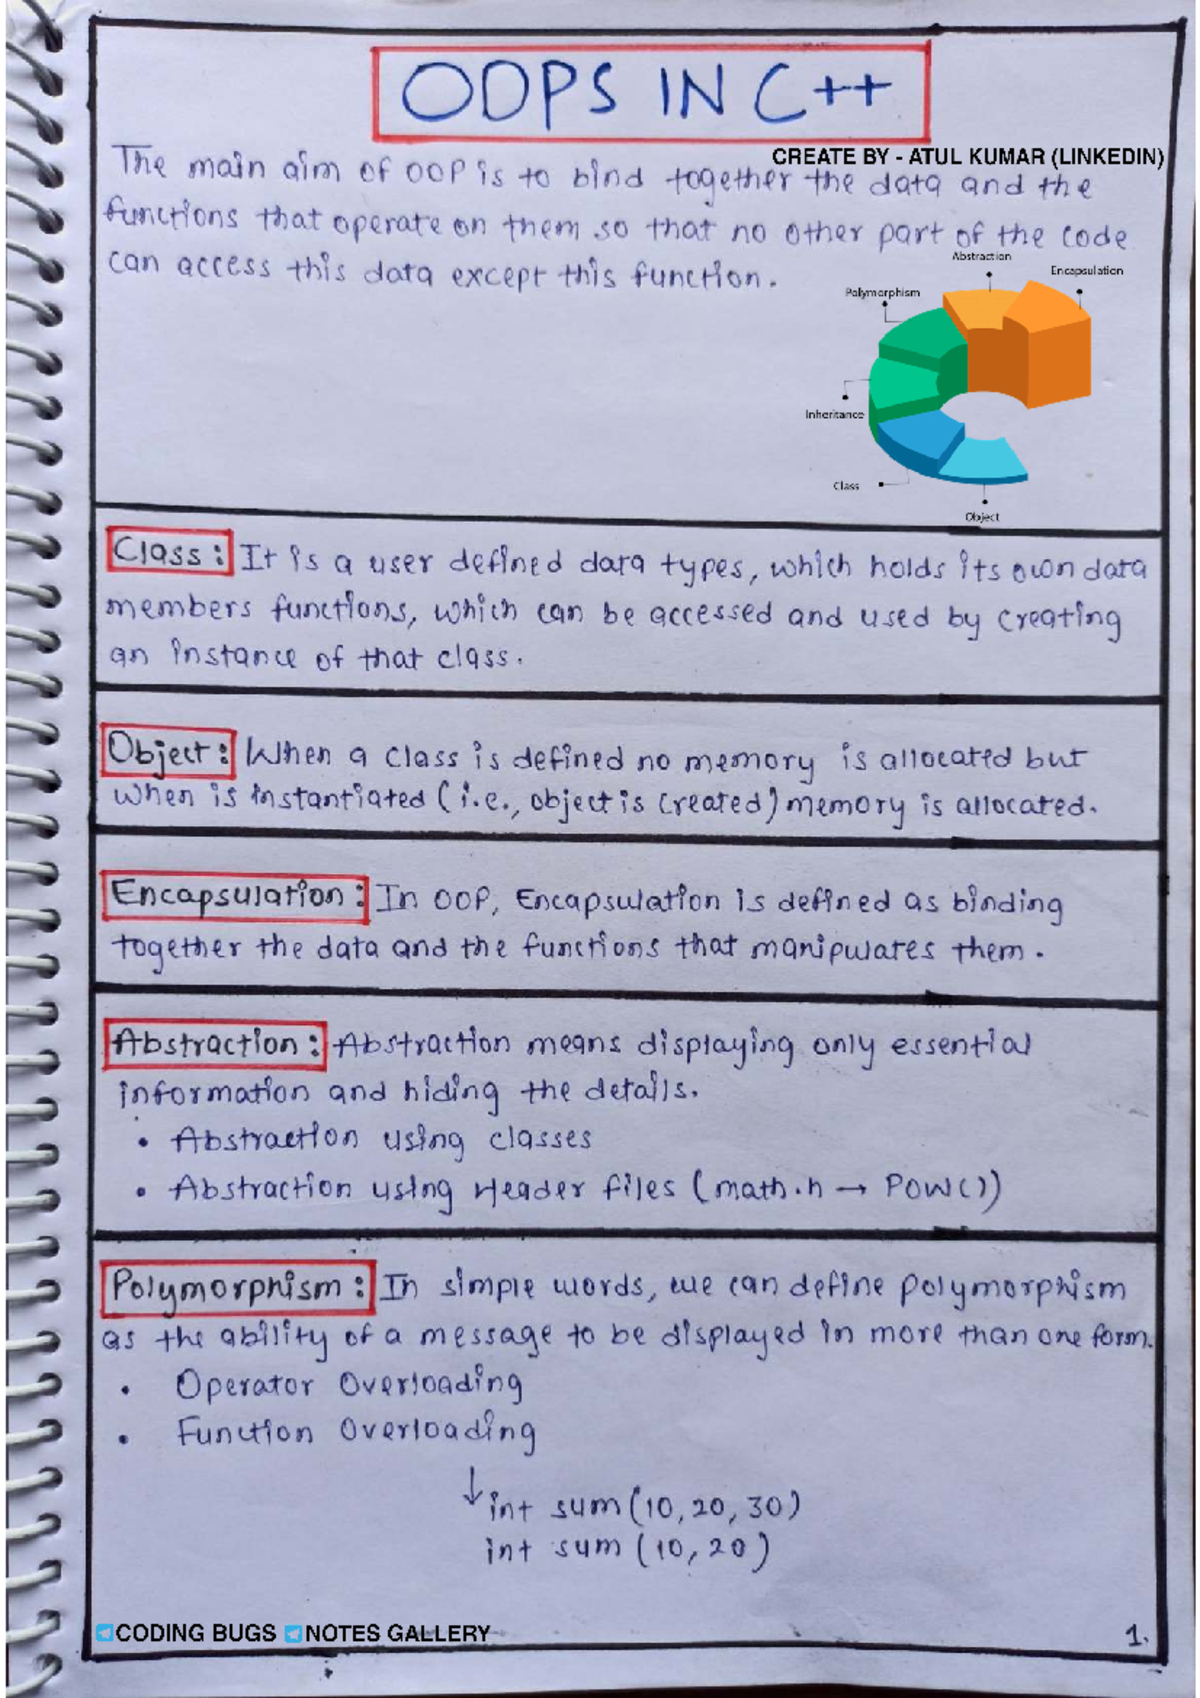 OOPS IN C++
CREATE BY - ATUL KUMAR (LINKEDIN)
The main aim of OOP is to bind together the data and the
functions that operate on them so that no other part of the code
can access this data except this function.
Abstraction
Encapsulation
Polymorphism
Inheritance
Class
Object
Class : It is a user defined data types, which holds its own data
members functions, which can be accessed and used by creating
an instance of that class.
Object : When a class is defined no memory is allocated but
when is instantiated (i.e., object is created) memory is allocated.
Encapsulation : In OOP, Encapsulation is defined as binding
together the data and the functions that manipulates them.
Abstraction : Abstraction means displaying only essential
information and hiding the details.
• Abstraction using classes
• Abstraction using Header files (math.h → POW())
Polymorphism : In simple words, we can define polymorphism
as the ability of a message to be displayed in more than one form.
• Operator Overloading
• Function Overloading
↓ int sum (10, 20, 30)
int sum (10, 20)
CODING BUGS NOTES GALLERY
1.